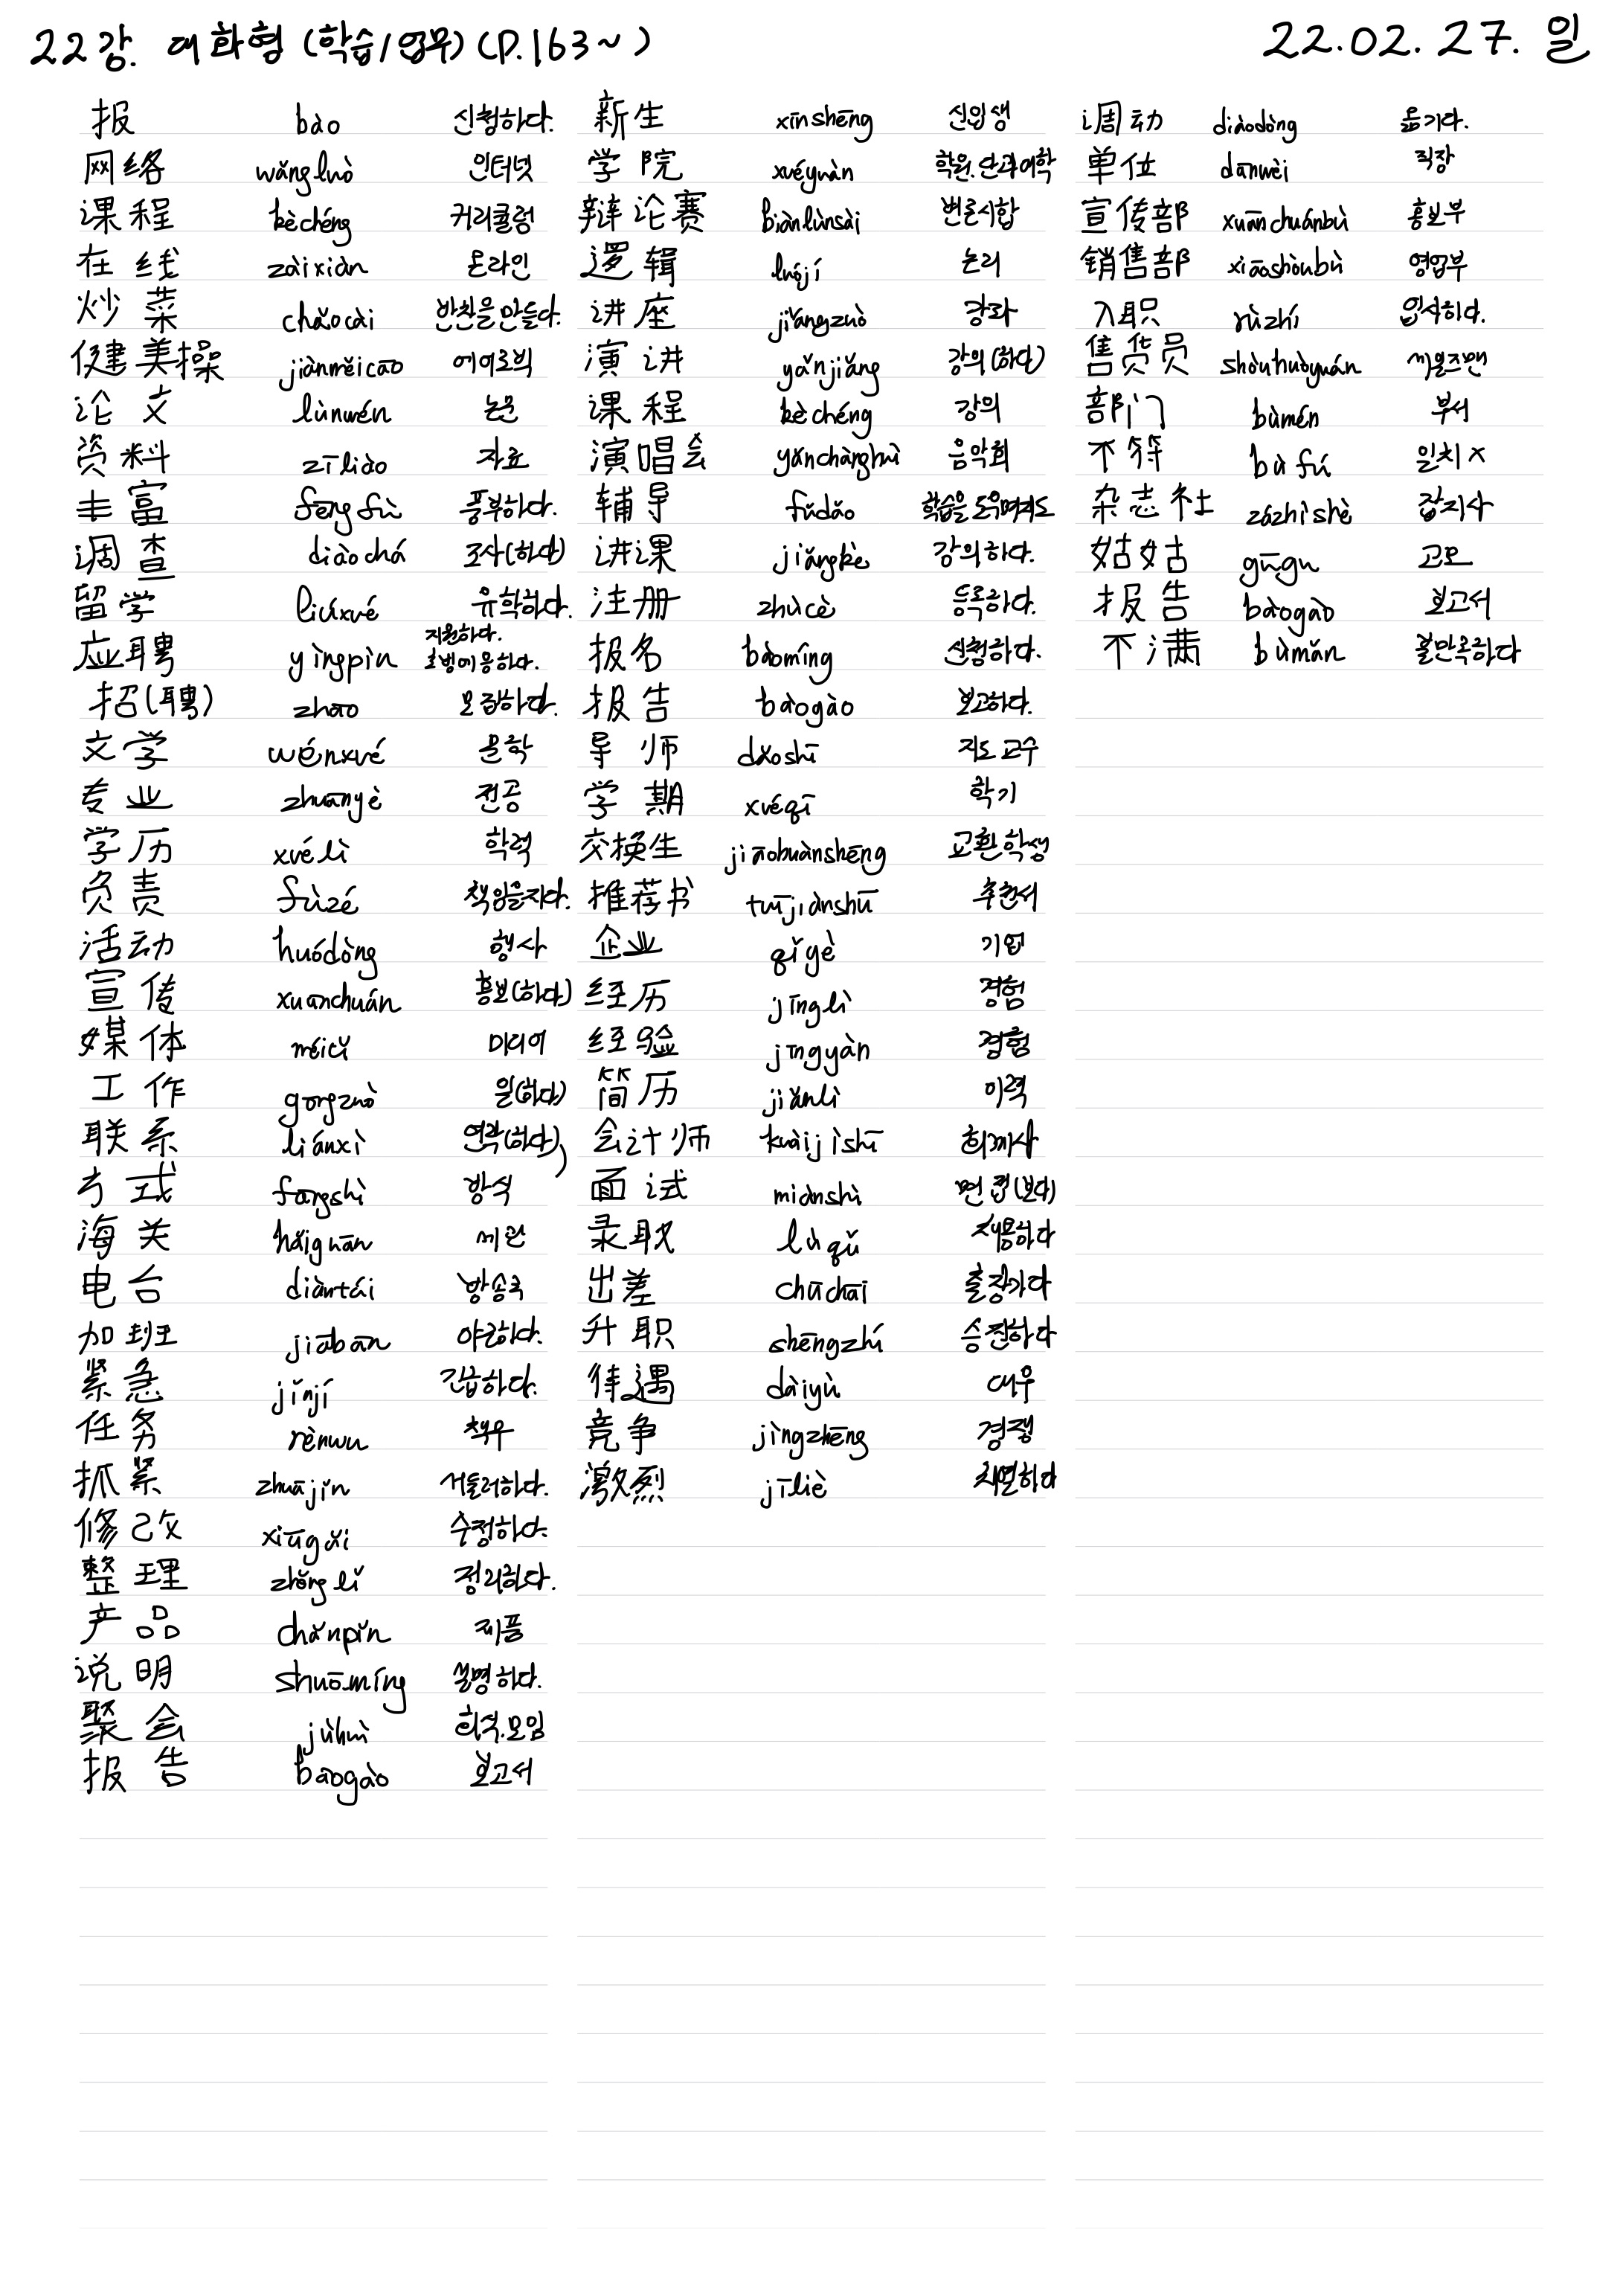 22강. 대화형 (학습/업무) (P.163~)
22.02.27. 일
报 bào 신청하다.
网络 wǎngluò 인터넷
课程 kèchéng 커리큘럼
在线 zàixiàn 온라인
炒菜 chǎocài 반찬을 만들다.
健美操 jiànměicāo 에어로빅
论文 lùnwén 논문
资料 zīliào 자료
丰富 fēngfù 풍부하다.
调查 diàochá 조사(하다)
留学 liúxué 유학하다.
应聘 yìngpìn 지원하다. 초빙에 응하다.
招(聘) zhāo 모집하다.
文学 wénxué 문학
专业 zhuānyè 전공
学历 xuélì 학력
负责 fùzé 책임을지다.
活动 huódòng 행사
宣传 xuānchuán 홍보(하다)
媒体 méicǐ 미디어
工作 gōngzuò 일(하다)
联系 liánxì 연락(하다)
方式 fāngshì 방식
海关 hǎiguān 세관
电台 diàntái 방송국
加班 jiābān 야근하다.
紧急 jǐnjí 긴급하다.
任务 rènwu 책무
抓紧 zhuājǐn 서둘러하다.
修改 xiūgǎi 수정하다.
整理 zhěnglǐ 정리하다.
产品 chǎnpǐn 제품
说明 shuōmíng 설명하다.
聚会 jùhuì 회식.모임
报告 bàogào 보고서
新生 xīnshēng 신입생
学院 xuéyuàn 학원.단과대학
辩论赛 biànlùnsài 변론시합
逻辑 luójí 논리
讲座 jiǎngzuò 강좌
演讲 yǎnjiǎng 강의(하다)
课程 kèchéng 강의
演唱会 yǎnchànghuì 음악회
辅导 fǔdǎo 학습을 도우며지도
讲课 jiǎngkè 강의하다.
注册 zhùcè 등록하다.
报名 bàomíng 신청하다.
报告 bàogào 보고하다.
导师 dǎoshī 지도교수
学期 xuéqī 학기
交换生 jiāohuànshēng 교환학생
推荐书 tuījiànshū 추천서
企业 qǐyè 기업
经历 jīnglì 경험
经验 jīngyàn 경험
简历 jiǎnlì 이력
会计师 kuàijìshī 회계사
面试 miànshì 면접(보다)
录取 lùqǔ 채용하다
出差 chūchāi 출장가다
升职 shēngzhí 승진하다
待遇 dàiyù 대우
竞争 jìngzhēng 경쟁
激烈 jīliè 치열하다
调动 diàodòng 옮기다.
单位 dānwèi 직장
宣传部 xuānchuánbù 홍보부
销售部 xiāoshòubù 영업부
入职 rùzhí 입식하다.
售货员 shòuhuòyuán 세일즈맨
部门 bùmén 부서
不符 bùfú 일치 x
杂志社 zázhìshè 잡지사
姑姑 gūgu 고모
报告 bàogào 보고서
不满 bùmǎn 불만족하다